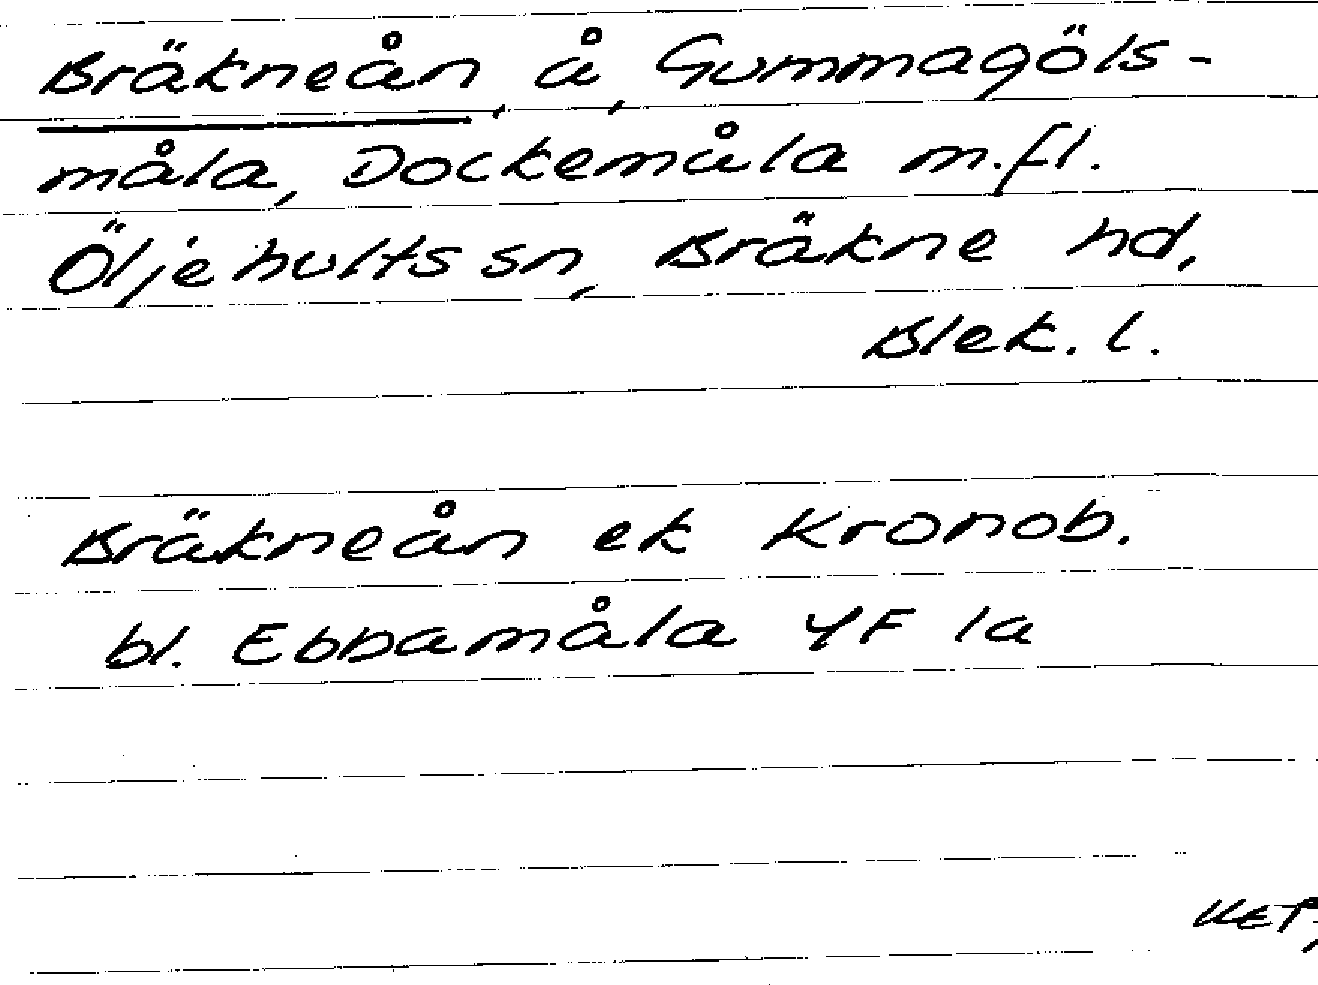 Bräkneån, å, Gummagöls-
måla, Dockemåla m.fl.
Öljehults sn, Bräkne hd,
Blek. l.
Bräkneån ek Kronob.
bl. Ebbamåla 4F 1a